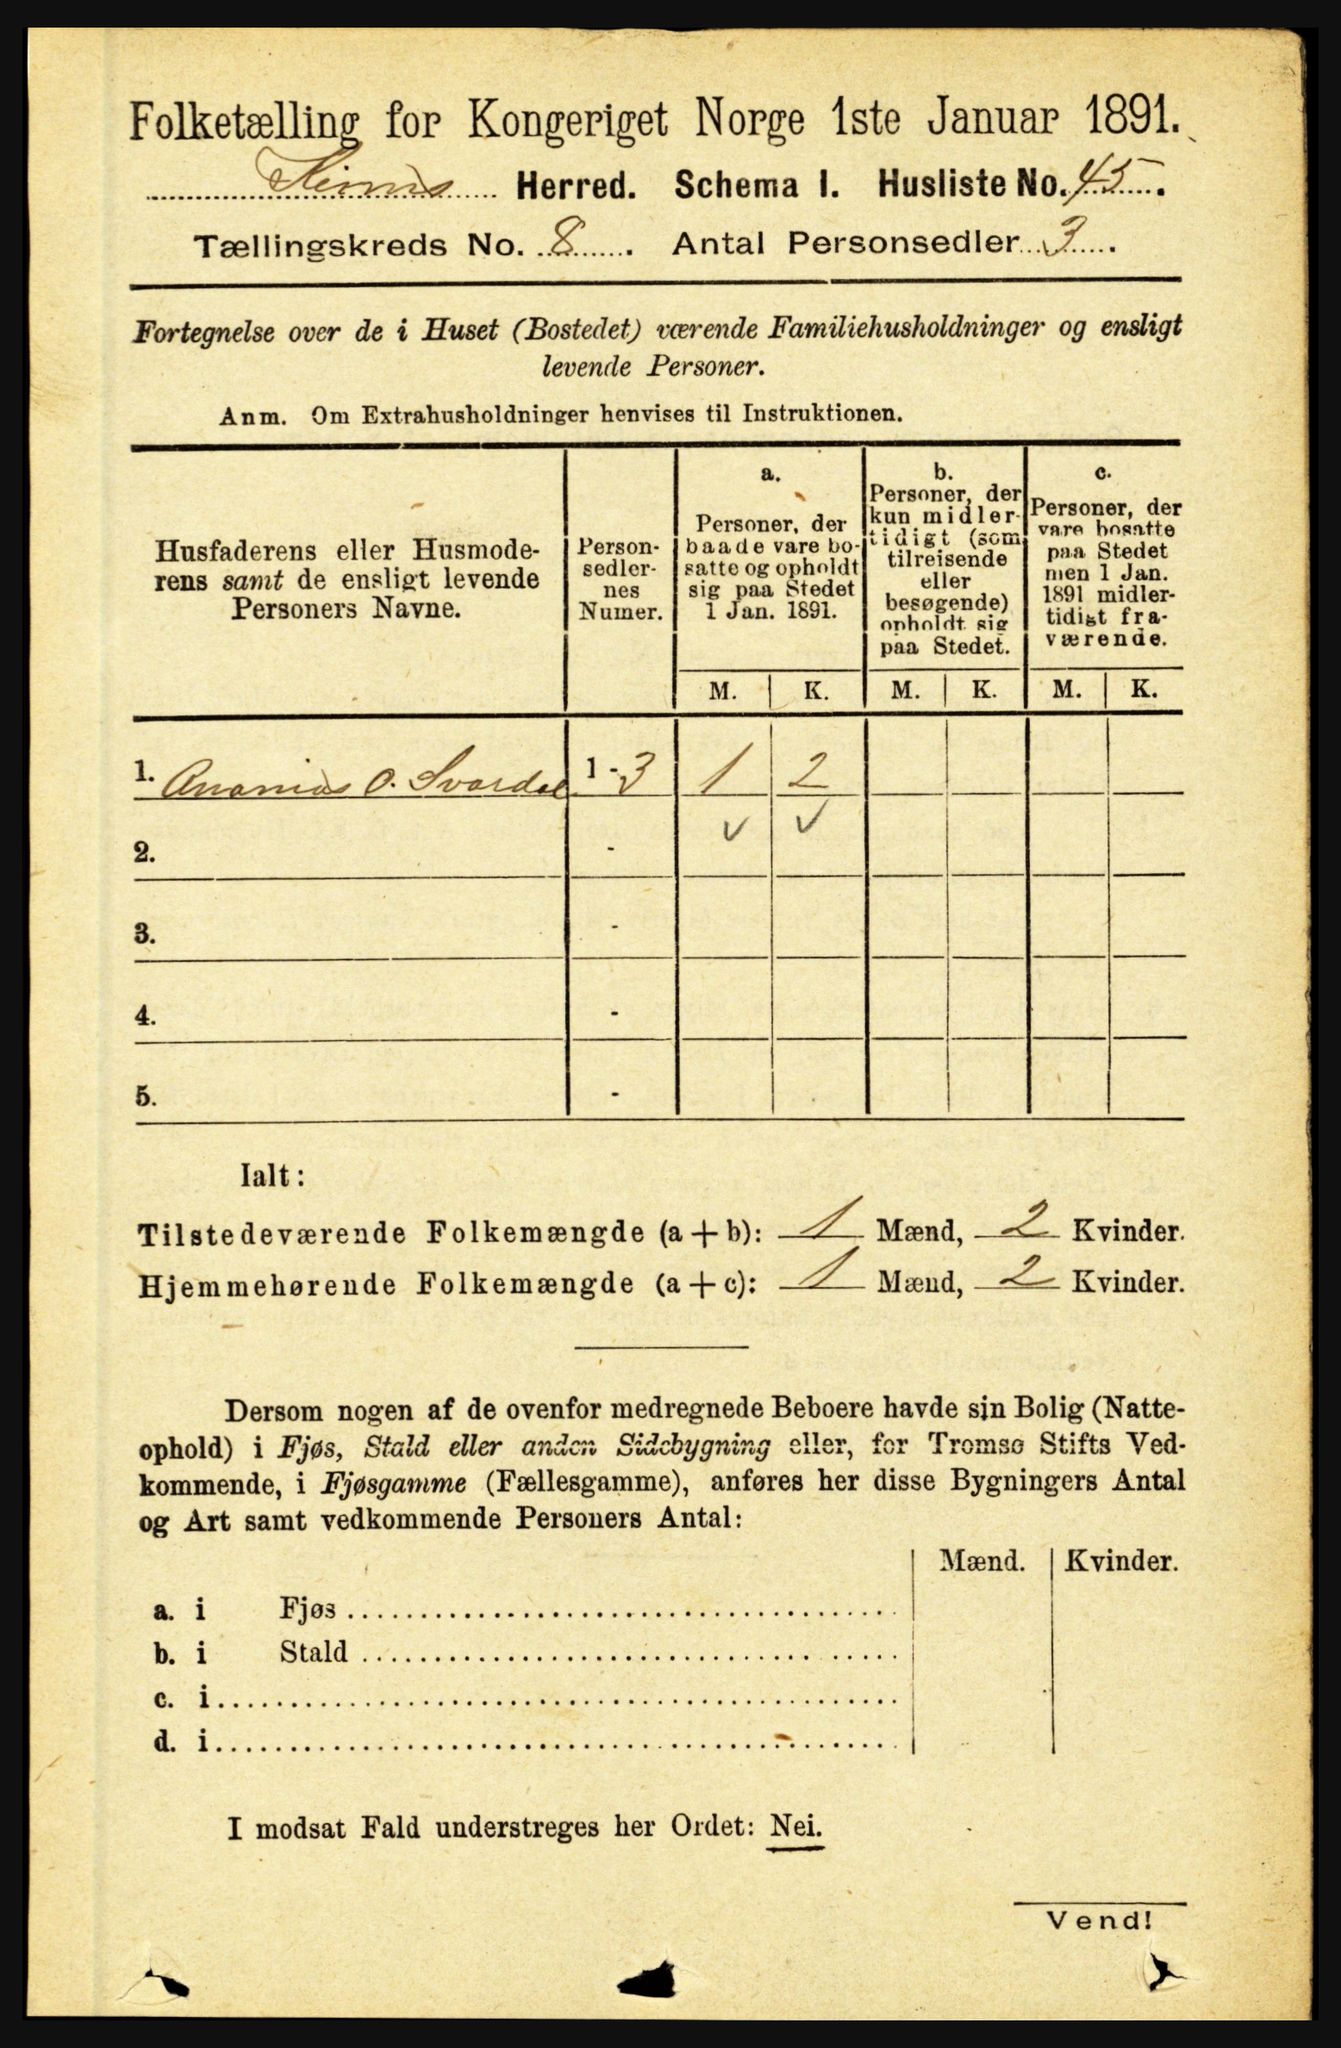 Folketælling for Kongeriget Norge 1ste Januar 1891.
Kinns Herred. Schema I. Husliste No. 45.
Tællingskreds No. 8. Antal Personsedler 3.
Fortegnelse over de i Huset (Bostedet) værende Familiehusholdninger og ensligt
levende Personer.
Anm. Om Extrahusholdninger henvises til Instruktionen.
Husfaderens eller Husmode-
rens samt de ensligt levende
Personers Navne.
Person-
sedler-
nes
Numer.
a.
Personer, der
baade vare bo-
satte og opholdt
sig paa Stedet
1 Jan. 1891.
b.
Personer, der
kun midler-
tidigt (som
tilreisende
eller
besøgende)
opholdt sig
paa Stedet.
c.
Personer, der
vare bosatte
paa Stedet
men 1 Jan.
1891 midler-
tidigt fra-
værende.
M. K. M. K. M. K.
1. Ananias O. Svardal 1 - 3 1 2
2. - v v
3. -
4. -
5. -
Ialt:
Tilstedeværende Folkemængde (a + b): 1 Mænd, 2 Kvinder.
Hjemmehørende Folkemængde (a + c): 1 Mænd, 2 Kvinder.
Dersom nogen af de ovenfor medregnede Beboere havde sin Bolig (Natte-
ophold) i Fjøs, Stald eller anden Sidebygning eller, for Tromsø Stifts Ved-
kommende, i Fjøsgamme (Fællesgamme), anføres her disse Bygningers Antal
og Art samt vedkommende Personers Antal:
Mænd. Kvinder.
a. i Fjøs
b. i Stald
c. i
d. i
I modsat Fald understreges her Ordet: Nei.
Vend!